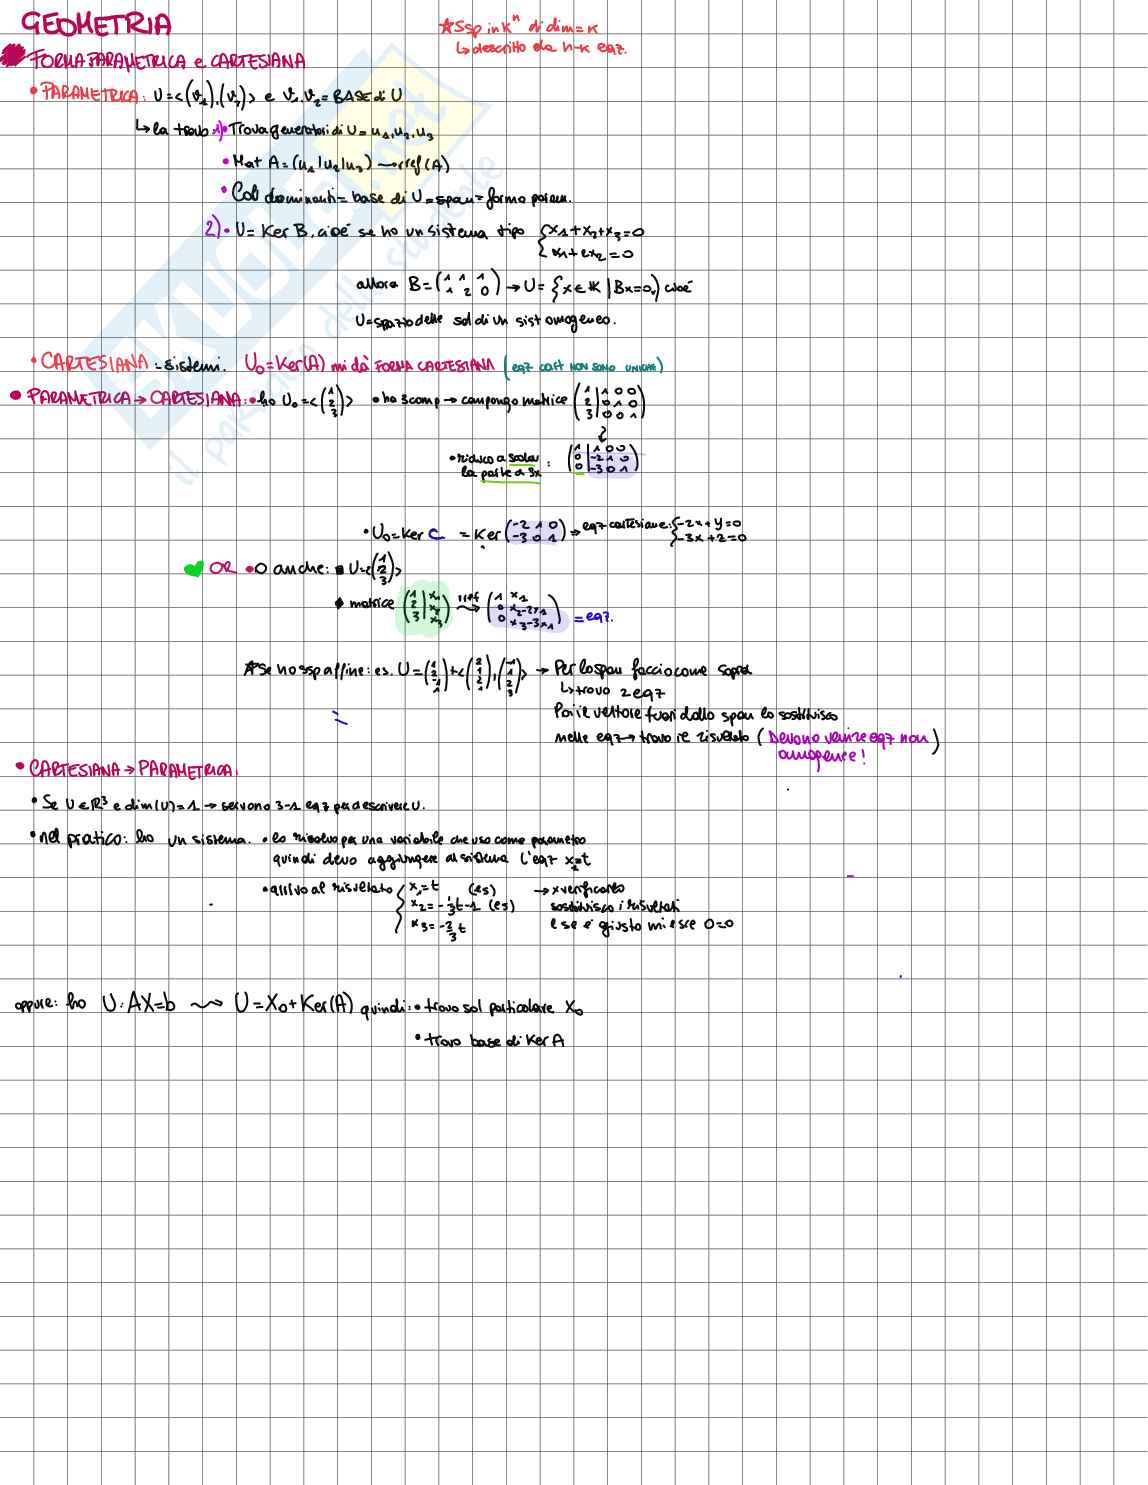 GEOMETRIA
★Ssp in Kⁿ di dim=k
↳descritto da n-k eqz.
FORMA PARAMETRICA e CARTESIANA
• PARAMETRICA: U=<(v₁),(v₂)> e v₁,v₂=BASE di U
↳la trovo 1)• Trova generatori di U=u₁,u₂,u₃
• Mat A=(u₁|u₂|u₃) → rref(A)
• Col dominanti= base di U=span=forma param.
2)• U=Ker B, cioè se ho un sistema tipo { x₁+x₂+x₃=0
x₁+2x₂=0
allora B=(1 1 1 / 1 2 0) → U={x∈K | Bx=0} cioè
U=spazio delle sol di un sist omogeneo.
• CARTESIANA = sistemi. U₀=Ker(A) mi dà FORMA CARTESIANA (eqz cart NON SONO UNICHE)
• PARAMETRICA → CARTESIANA: • ho U₀=<(1 2 3)> • ho 3comp → compongo matrice (1 | 1 0 0 / 2 | 0 1 0 / 3 | 0 0 1)
• riduco a scala
la parte a sx : (1 | 1 0 0 / 0 | -2 1 0 / 0 | -3 0 1)
• U₀=Ker C = Ker(-2 1 0 / -3 0 1) → eqz cartesiane: { -2x+y=0
-3x+z=0
OR • O anche: • U=<(1 2 3)>
• matrice (1 | x₁ / 2 | x₂ / 3 | x₃) rref (1 x₁ / 0 x₂-2x₁ / 0 x₃-3x₁) = eqz.
★Se ho ssp affine: es. U=(1 2 -1 1)+<(2 1 2 1),(-1 1 2 3)> → Per lo span faccio come sopra
↳trovo 2 eqz
Poi il vettore fuori dallo span lo sostituisco
nelle eqz → trovo il risultato (Devono venire eqz non
omogenee!)
• CARTESIANA → PARAMETRICA:
• Se U∈R³ e dim(U)=1 → servono 3-1 eqz per descrivere U.
• nel pratico: ho un sistema. • lo risolvo per una variabile che uso come parametro
quindi devo aggiungere al sistema l'eqz x=t
• arrivo al risultato { x₁=t (es) → x verificarlo
x₂=-⅓t-1 (es) sostituisco i risultati
x₃=-⅔t e se è giusto mi esce 0=0
oppure: ho U: AX=b ⤳ U=X₀+Ker(A) quindi: • trovo sol particolare X₀
• trovo base di Ker A
SKUOLA.net
il paradiso dello studente